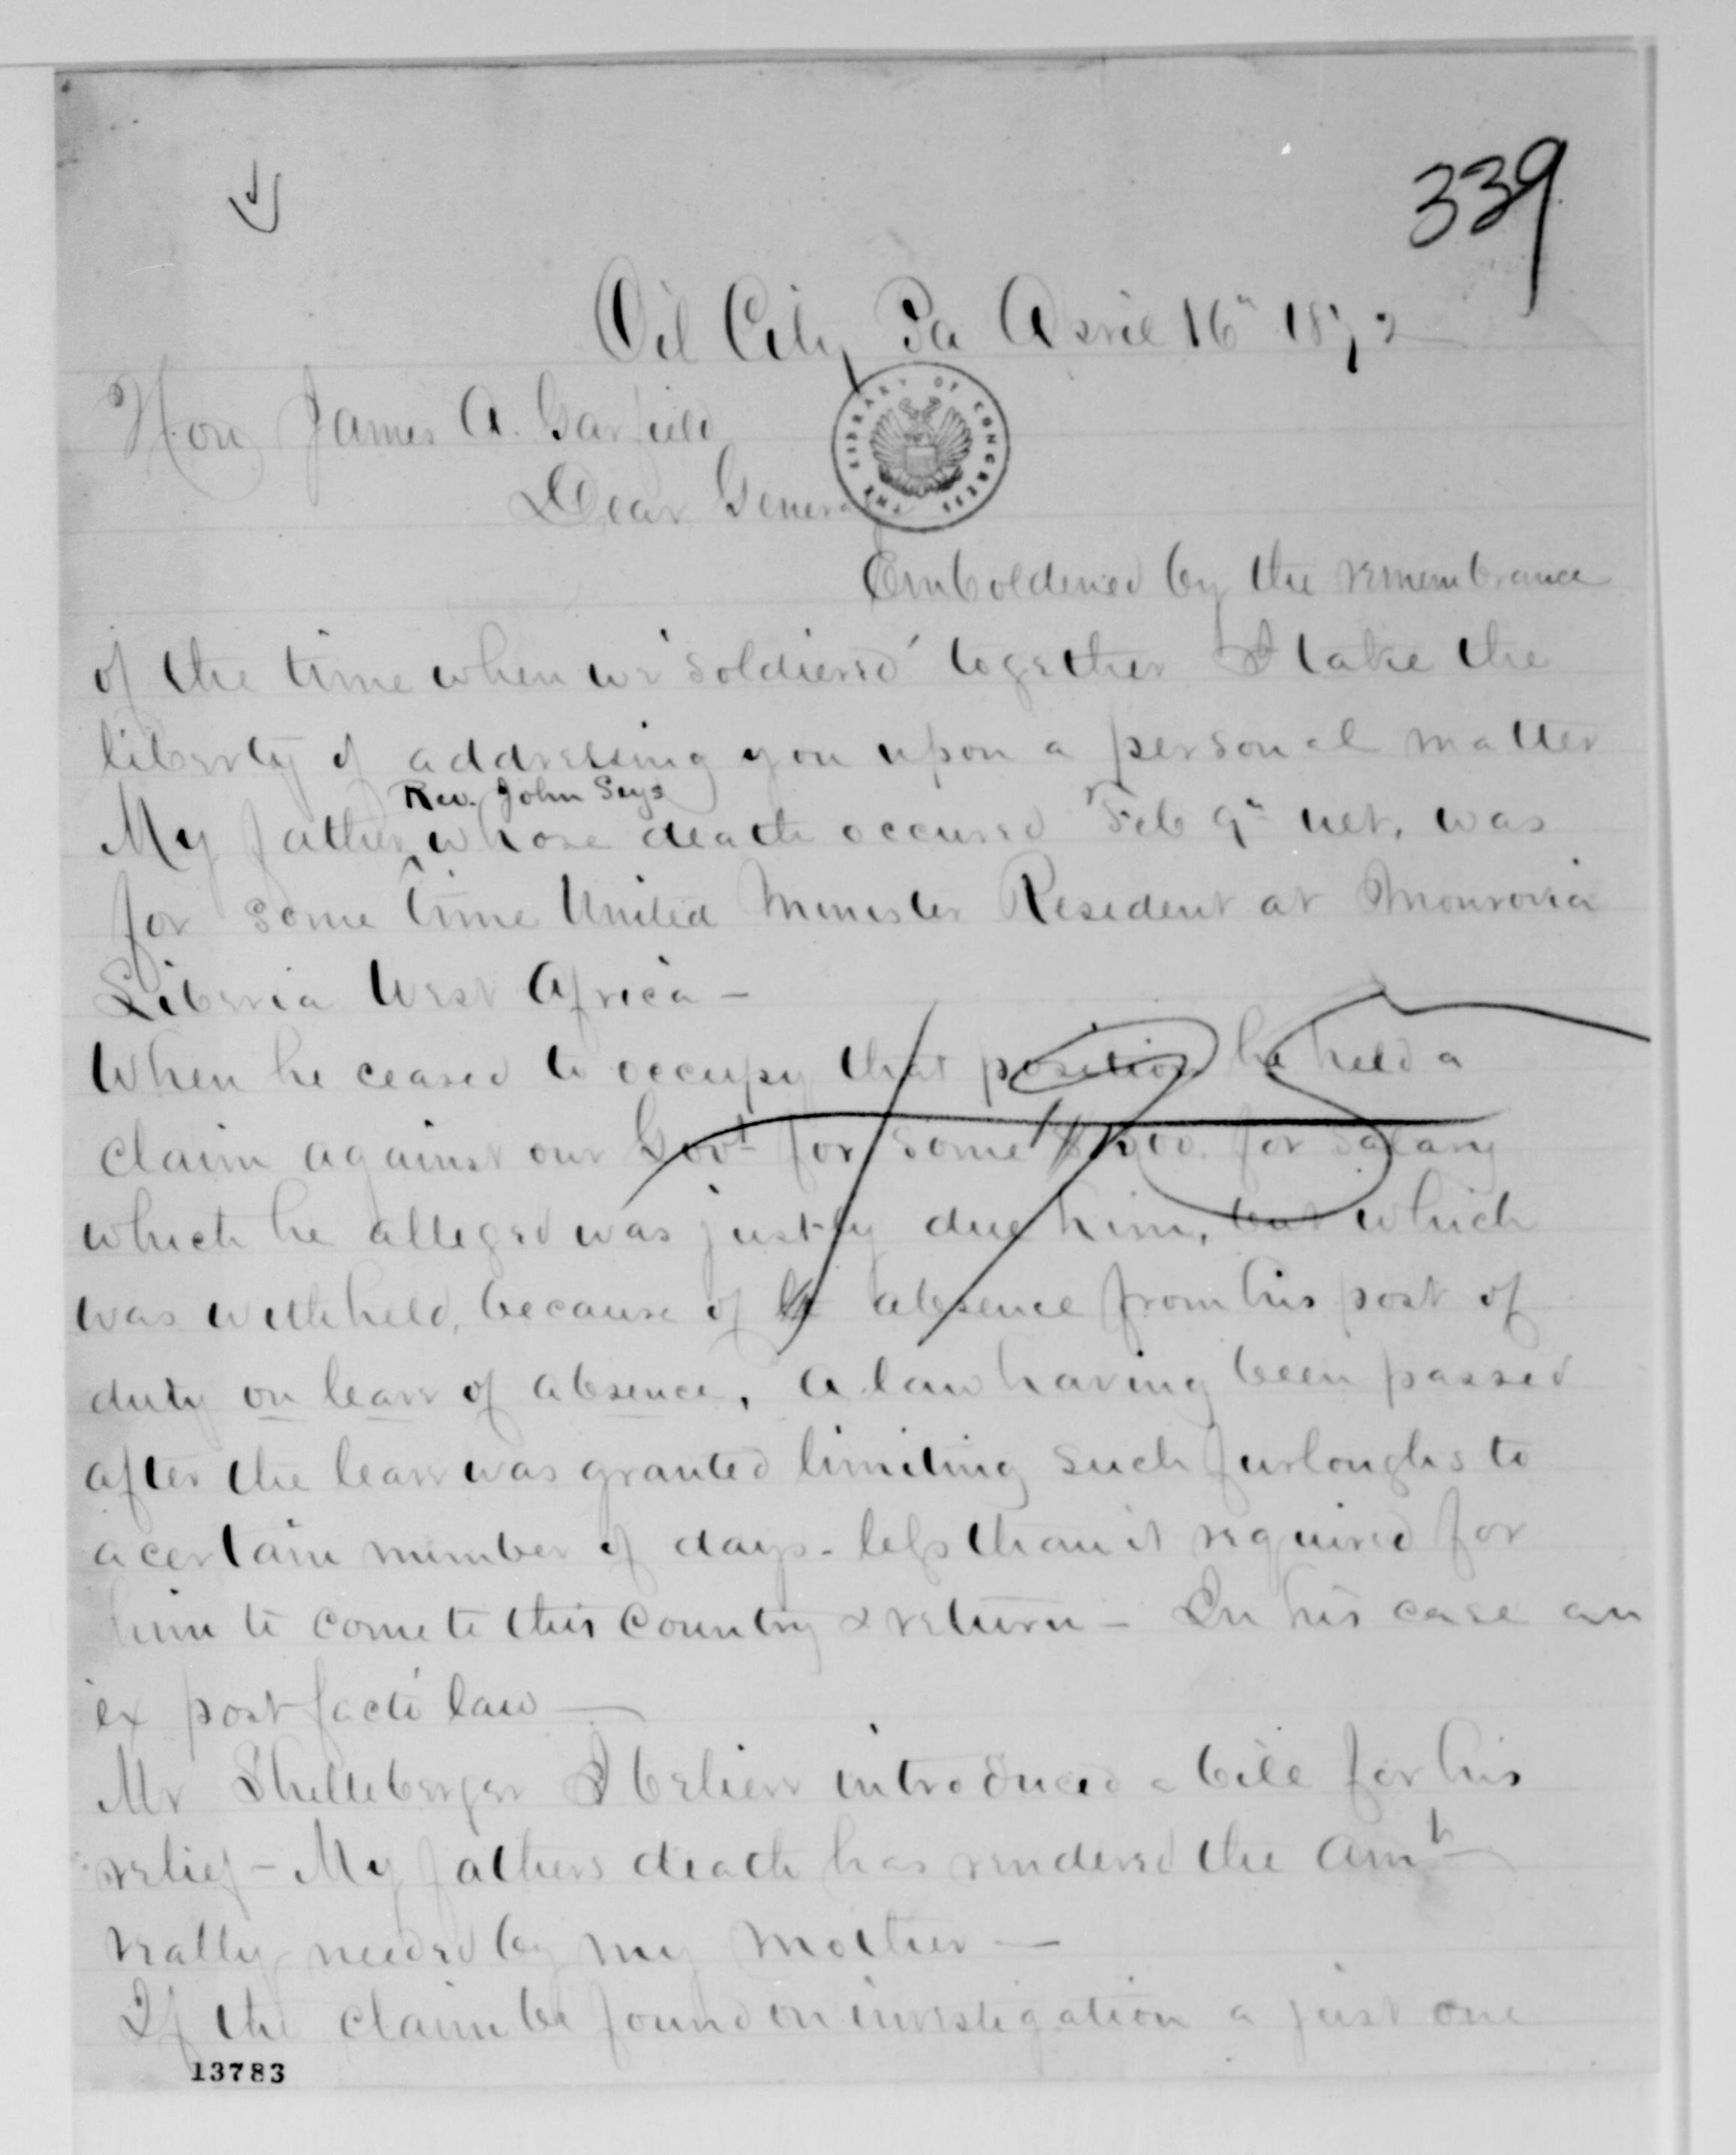 339
Oil City Pa April 16" 1872
Hon James A. Garfield
THE LIBRARY OF CONGRESS
Dear General
Emboldened by the remembrance
of the time when we 'soldiered' together I take the
liberty of addressing you upon a personal matter
Rev. John Seys
My father ^ whose death occured Feb 9" was
for some time United Minister Resident at Monrovia
Liberia West Africa -
When he ceased to occupy that position he held a
claim against our Govt for some for salary
which he alleged was justly due him, but which
was withheld, because of absence from his post of
duty on leave of absence, A law having been passed
after the leave was granted limiting such furloughs to
a certain number of days - less than it required for
him to come to this Country & return - In his case an
ex post facto law —
Mr Shelleberger I believe introduced a bill for his
relief - My fathers death has rendered the Amt
really needed by my mother —
If the claim be found on investigation a just one
13783